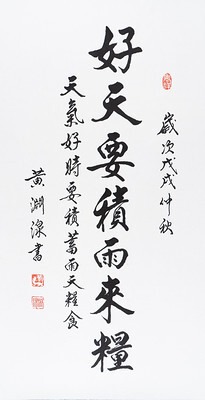 歲次戊戌仲秋
好天要積雨來糧
天氣好時要積蓄雨天糧食
黃淵澋書